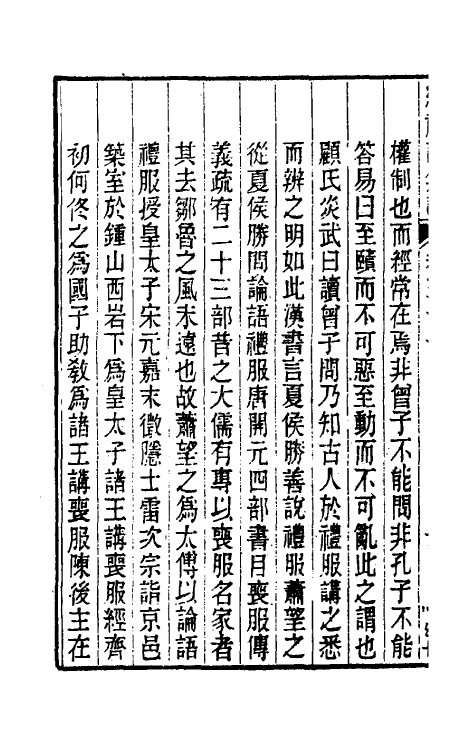 權制也而經常在焉非曾子不能問非孔子不能
答易曰至賾而不可惡至動而不可亂此之謂也
顧氏炎武曰讀曾子問乃知古人於禮服講之悉
而辨之明如此漢書言夏侯勝善說禮服蕭望之
從夏侯勝問論語禮服唐開元四部書目喪服傳
義疏有二十三部昔之大儒有專以喪服名家者
其去鄒魯之風未遠也故蕭望之爲太傅以論語
禮服授皇太子宋元嘉末徵隱士雷次宗詣京邑
築室於鍾山西岩下爲皇太子諸王講喪服經齊
初何佟之爲國子助教爲諸王講喪服陳後主在